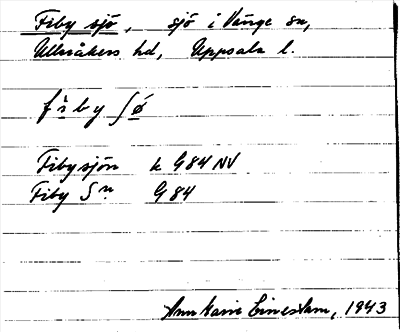 Fiby sjö, sjö i Vänge sn,
Ulleråkers hd, Uppsala l.
fìby ʃǿ
Fibysjön k G 84 NV
Fiby Sn G 84
Ann Marie Einestam, 1943